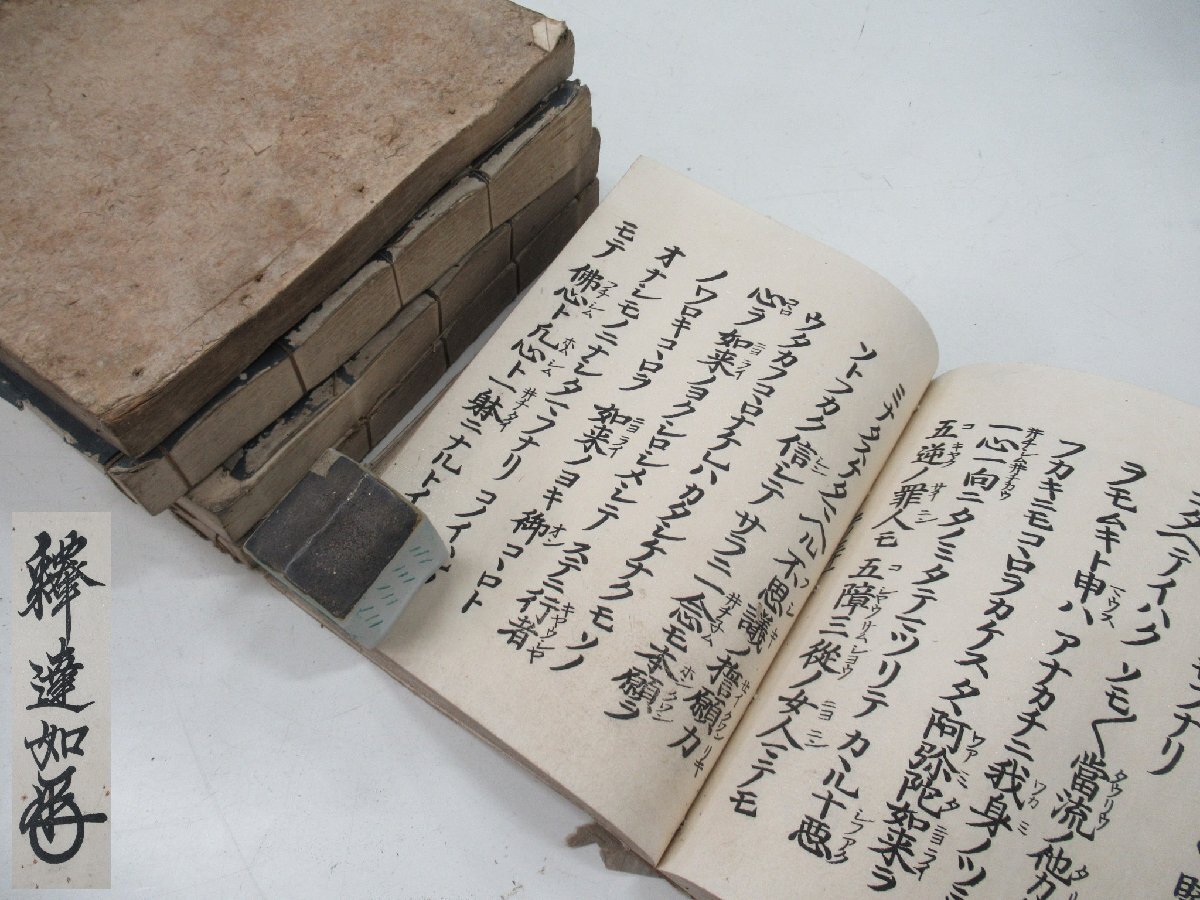 タヘテイハク ソモ〱當流ノ他力
ヲモムキト申ハ アナカチニ我身ノツミ
フカキニモコヽロヲカケスタヽ阿弥陀如来ヲ
一心一向ニタノミタテマツリテ カヽル十悪
五逆ノ罪人モ 五障三從ノ女人マテモ
ミナタスケタマヘル不思議ノ誓願力
ソトフカク信シテ サラニ一念モ本願ヲ
ウタカフコヽロナケレハ カタシケナクモソノ
心ヲ 如来ノヨクシロシメシテ ステニ行者
ノワロキコヽロヲ 如来ノヨキ御コヽロト
オナシモノニナシタマフナリ コノイハ
モテ 佛心ト凢心ト一躰ニナルトイ
釋達如